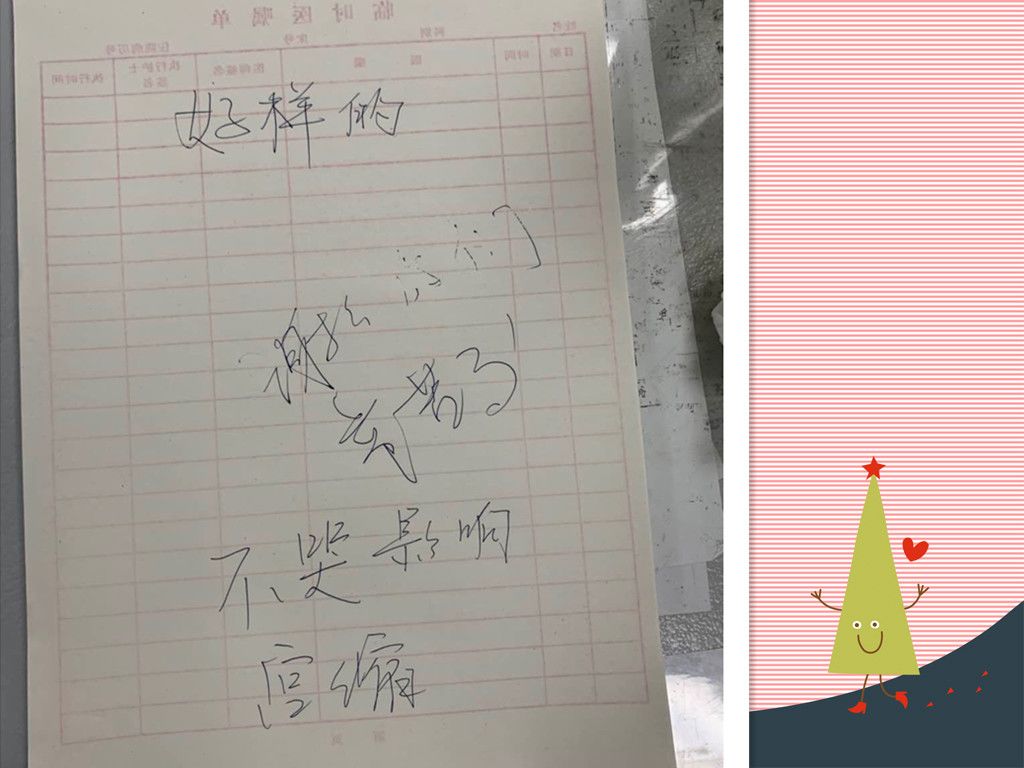 临时医嘱单
姓名 科别 序号 住院病历号
日期 时间 医嘱 医师签名 执行护士签名 执行时间
好样的
谢谢你们
辛苦了
不哭影响
宫缩
第 页